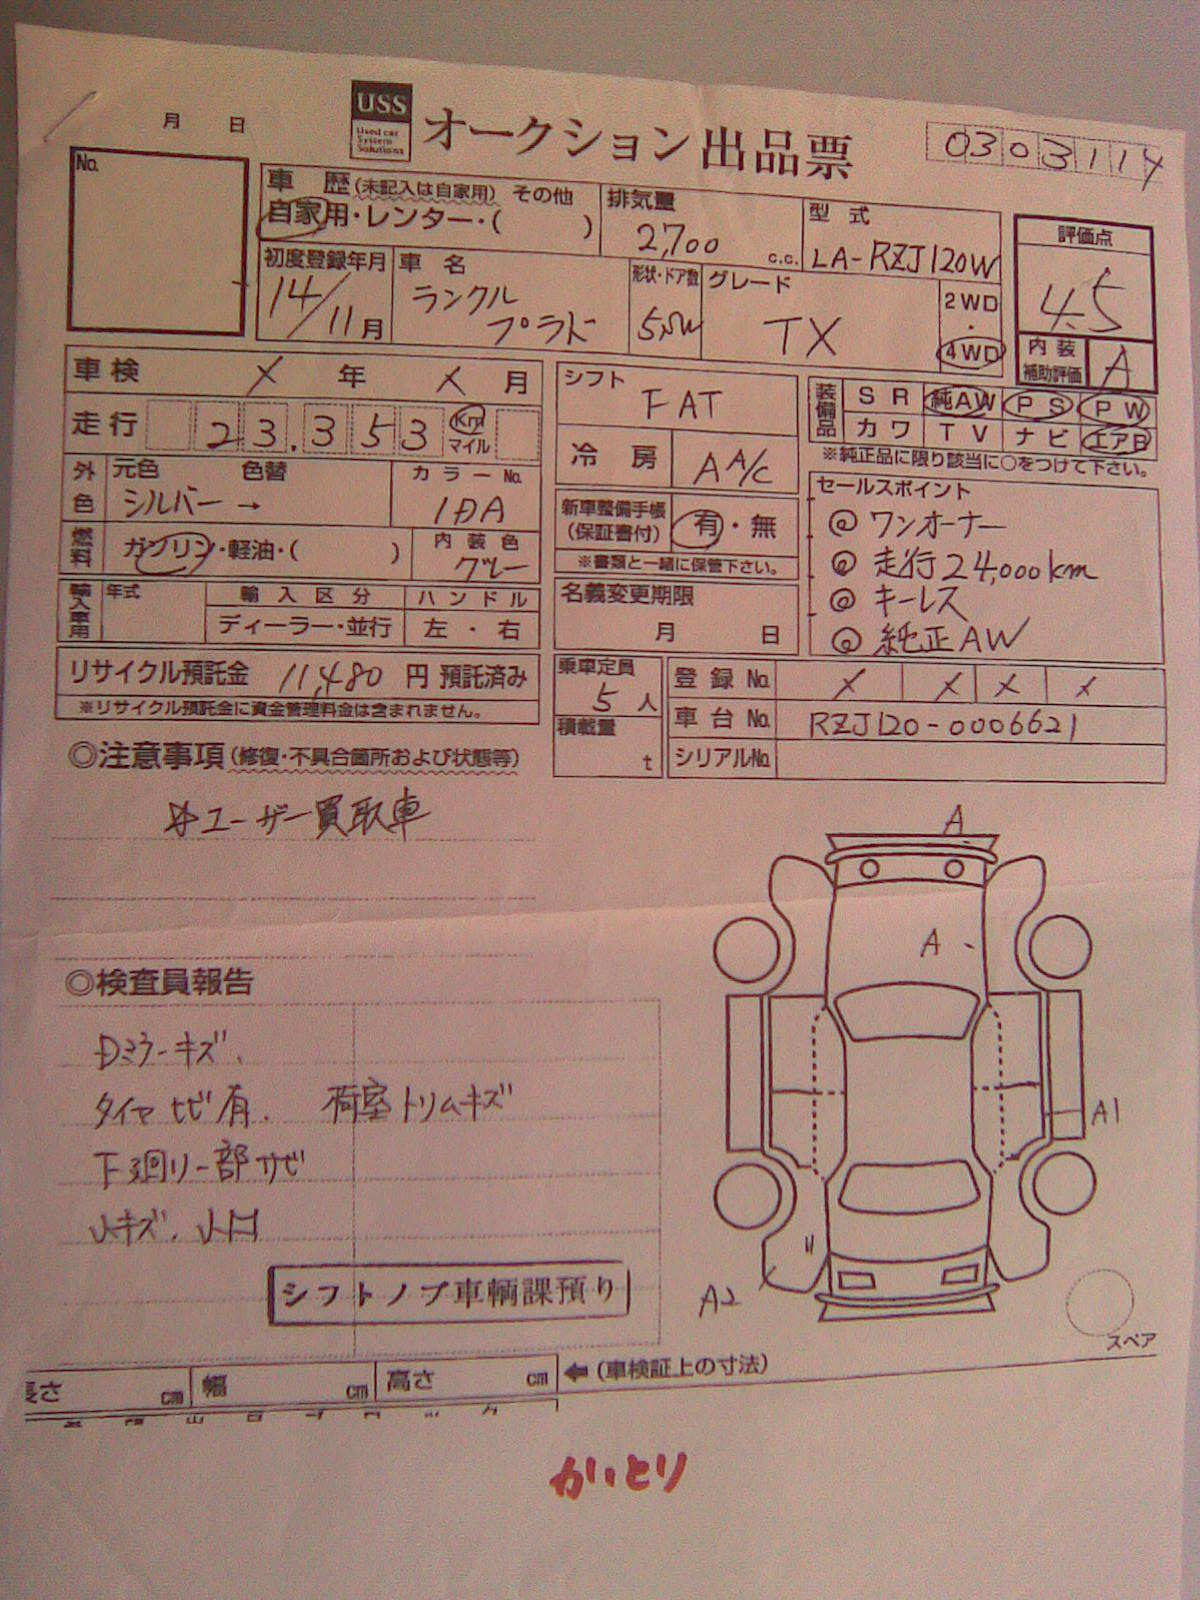 月 日
USS
Used car
System
Solutions
オークション出品票
0303114
No.
車歴(未記入は自家用) その他
自家用・レンター・( )
排気量
2,700 c.c.
型式
LA-RZJ120W
評価点
4.5
初度登録年月
14/11月
車名
ランクル
プラド
形状・ドア数
5,SW
グレード
TX
2WD
・
4WD
内装
補助評価
A
車検 X 年 X 月
走行 23.353 Km
マイル
シフト
FAT
冷房
AA/C
装備品
SR 純AW PS PW
カワ TV ナビ エアB
※純正品に限り該当に○をつけて下さい。
外色
元色 色替
シルバー→
カラーNo.
1DA
燃料
ガソリン・軽油・( )
内装色
グレー
新車整備手帳
(保証書付)
有・無
※書類と一緒に保管下さい。
セールスポイント
◎ ワンオーナー
◎ 走行24,000km
◎ キーレス
◎ 純正AW
輸入車用
年式
輸入区分
ディーラー・並行
ハンドル
左・右
名義変更期限
月 日
リサイクル預託金 11,480 円 預託済み
※リサイクル預託金に資金管理料金は含まれません。
乗車定員
5人
積載量
t
登録No. X X X X
車台No. RZJ120-0006621
シリアルNo.
◎注意事項(修復・不具合箇所および状態等)
ユーザー買取車
◎検査員報告
Dミラーキズ、
タイヤヒビ有、 荷室トリムキズ
下廻り一部サビ
小キズ、小凹
シフトノブ車輌課預り
A
A
A1
A2
スペア
長さ cm 幅 cm 高さ cm ←(車検証上の寸法)
かいとり